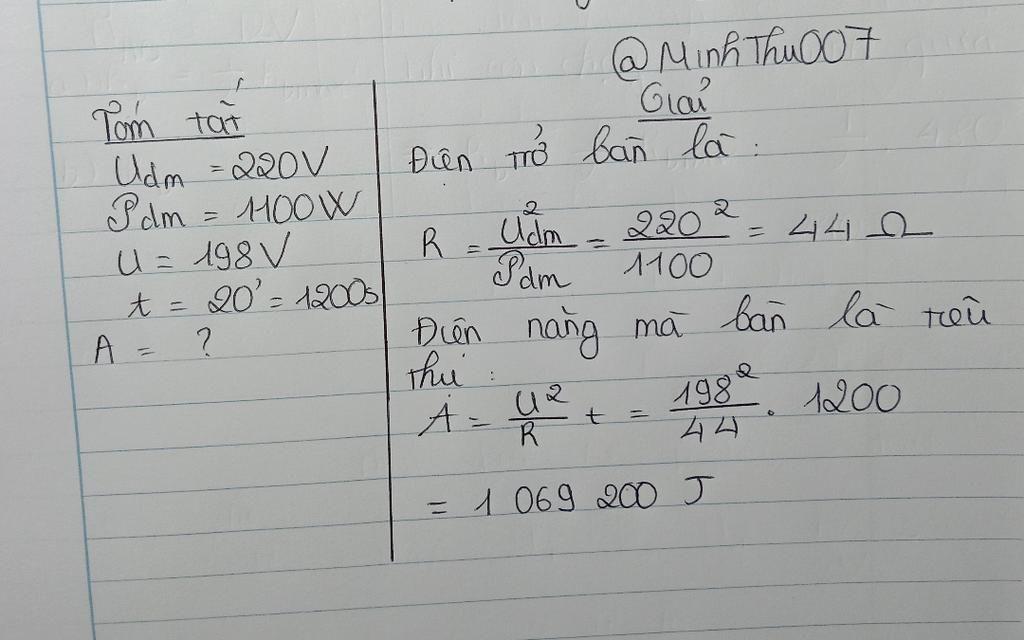 @MinhThu007
Tóm tắt
Uđm = 220V
Pđm = 1100W
U = 198V
t = 20' = 1200s
A = ?
Giải
Điện trở bàn là :
R = Uđm² / Pđm = 220² / 1100 = 44 Ω
Điện năng mà bàn là tiêu
thụ :
A = U² / R t = 198² / 44 . 1200
= 1 069 200 J